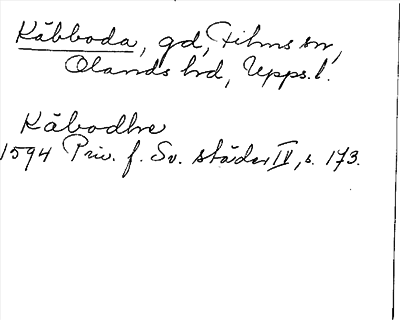 Kåbboda, gd, Films sn,
Olands hd, Upps. l.
Kåbodhre
1594 Priv. f. Sv. städer IV, s. 173.